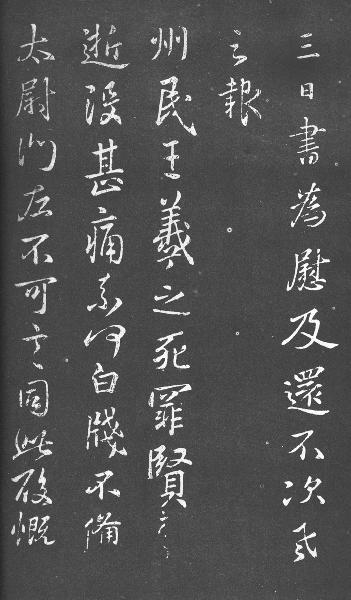 三日書為慰及還不次羲
之報
州民王羲之死罪賢
逝沒甚痛奈何白牋不備
太尉門在不可言同此慨